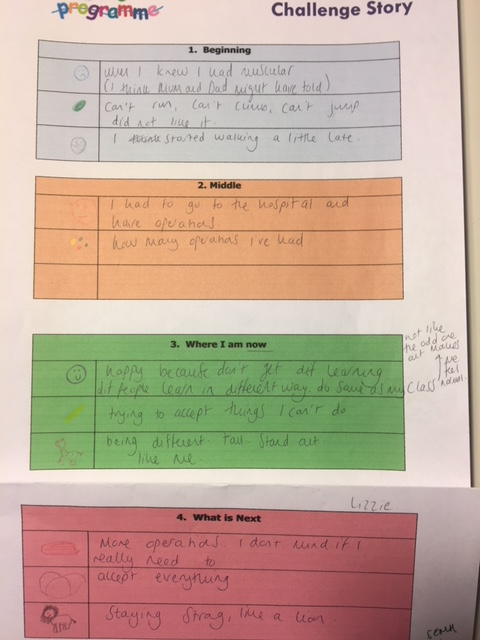 programme
Challenge Story
1. Beginning
when I knew I had muscular
(I think Mum and Dad might have told)
can't run, can't climb, can't jump
did not like it.
I started walking a little late.
2. Middle
I had to go to the hospital and
have operations.
how many operations I've had
3. Where I am now
happy because don't get dif learning
dif people learn in different way. do same as my class
not like
the odd one
out makes
me
feel
normal.
trying to accept things I can't do
being different. Tall. Stand out
like me.
Lizzie
4. What is Next
More operations. I don't mind if I
really need to
accept everything
Staying Strog, like a lion.